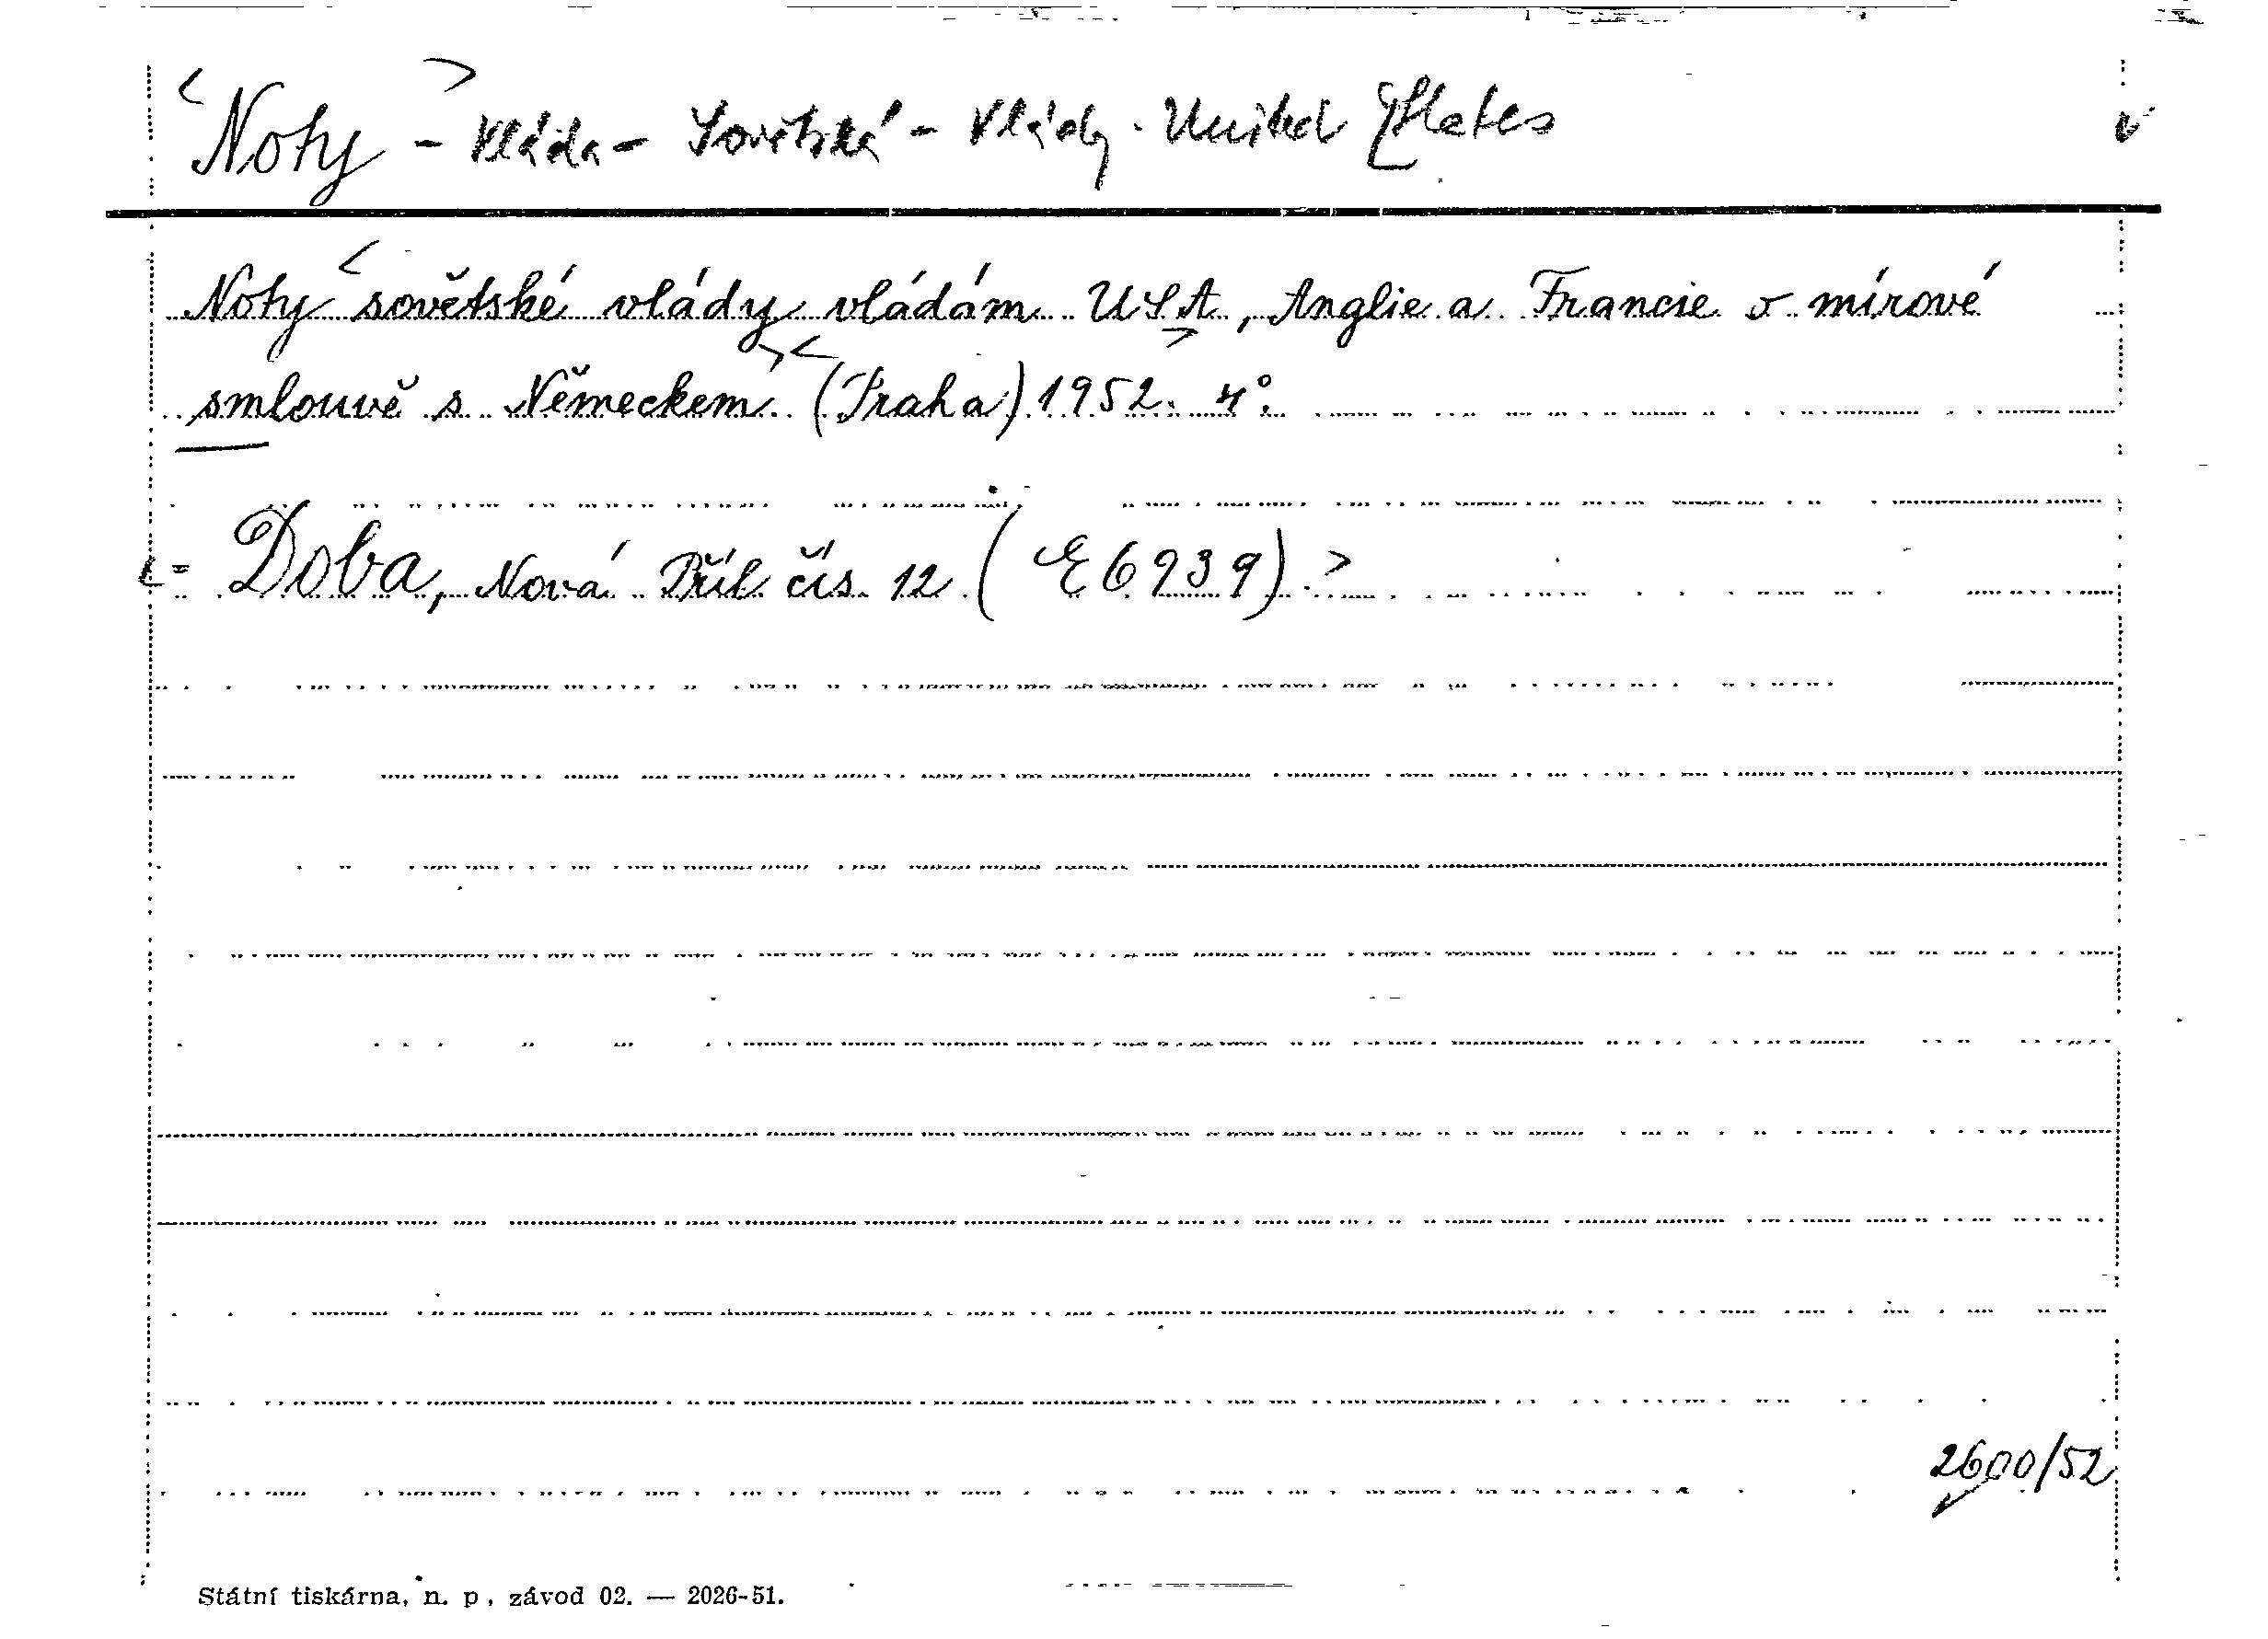 <Noty> - Vláda - Sovětská - Vlády - United States
Noty <sovětské vlády vládám USA>, Anglie a Francie o mírové
smlouvě s Německem. > < (Praha) 1952. 4°.
<= Doba, Nová Příl. čís. 12 (E 6939).>
2600/52
Státní tiskárna, n. p., závod 02. — 2026-51.